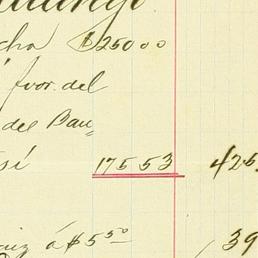 cha $25000
á fvor. del
des Ban=
sí 17553 425
aiz á $5.50 39